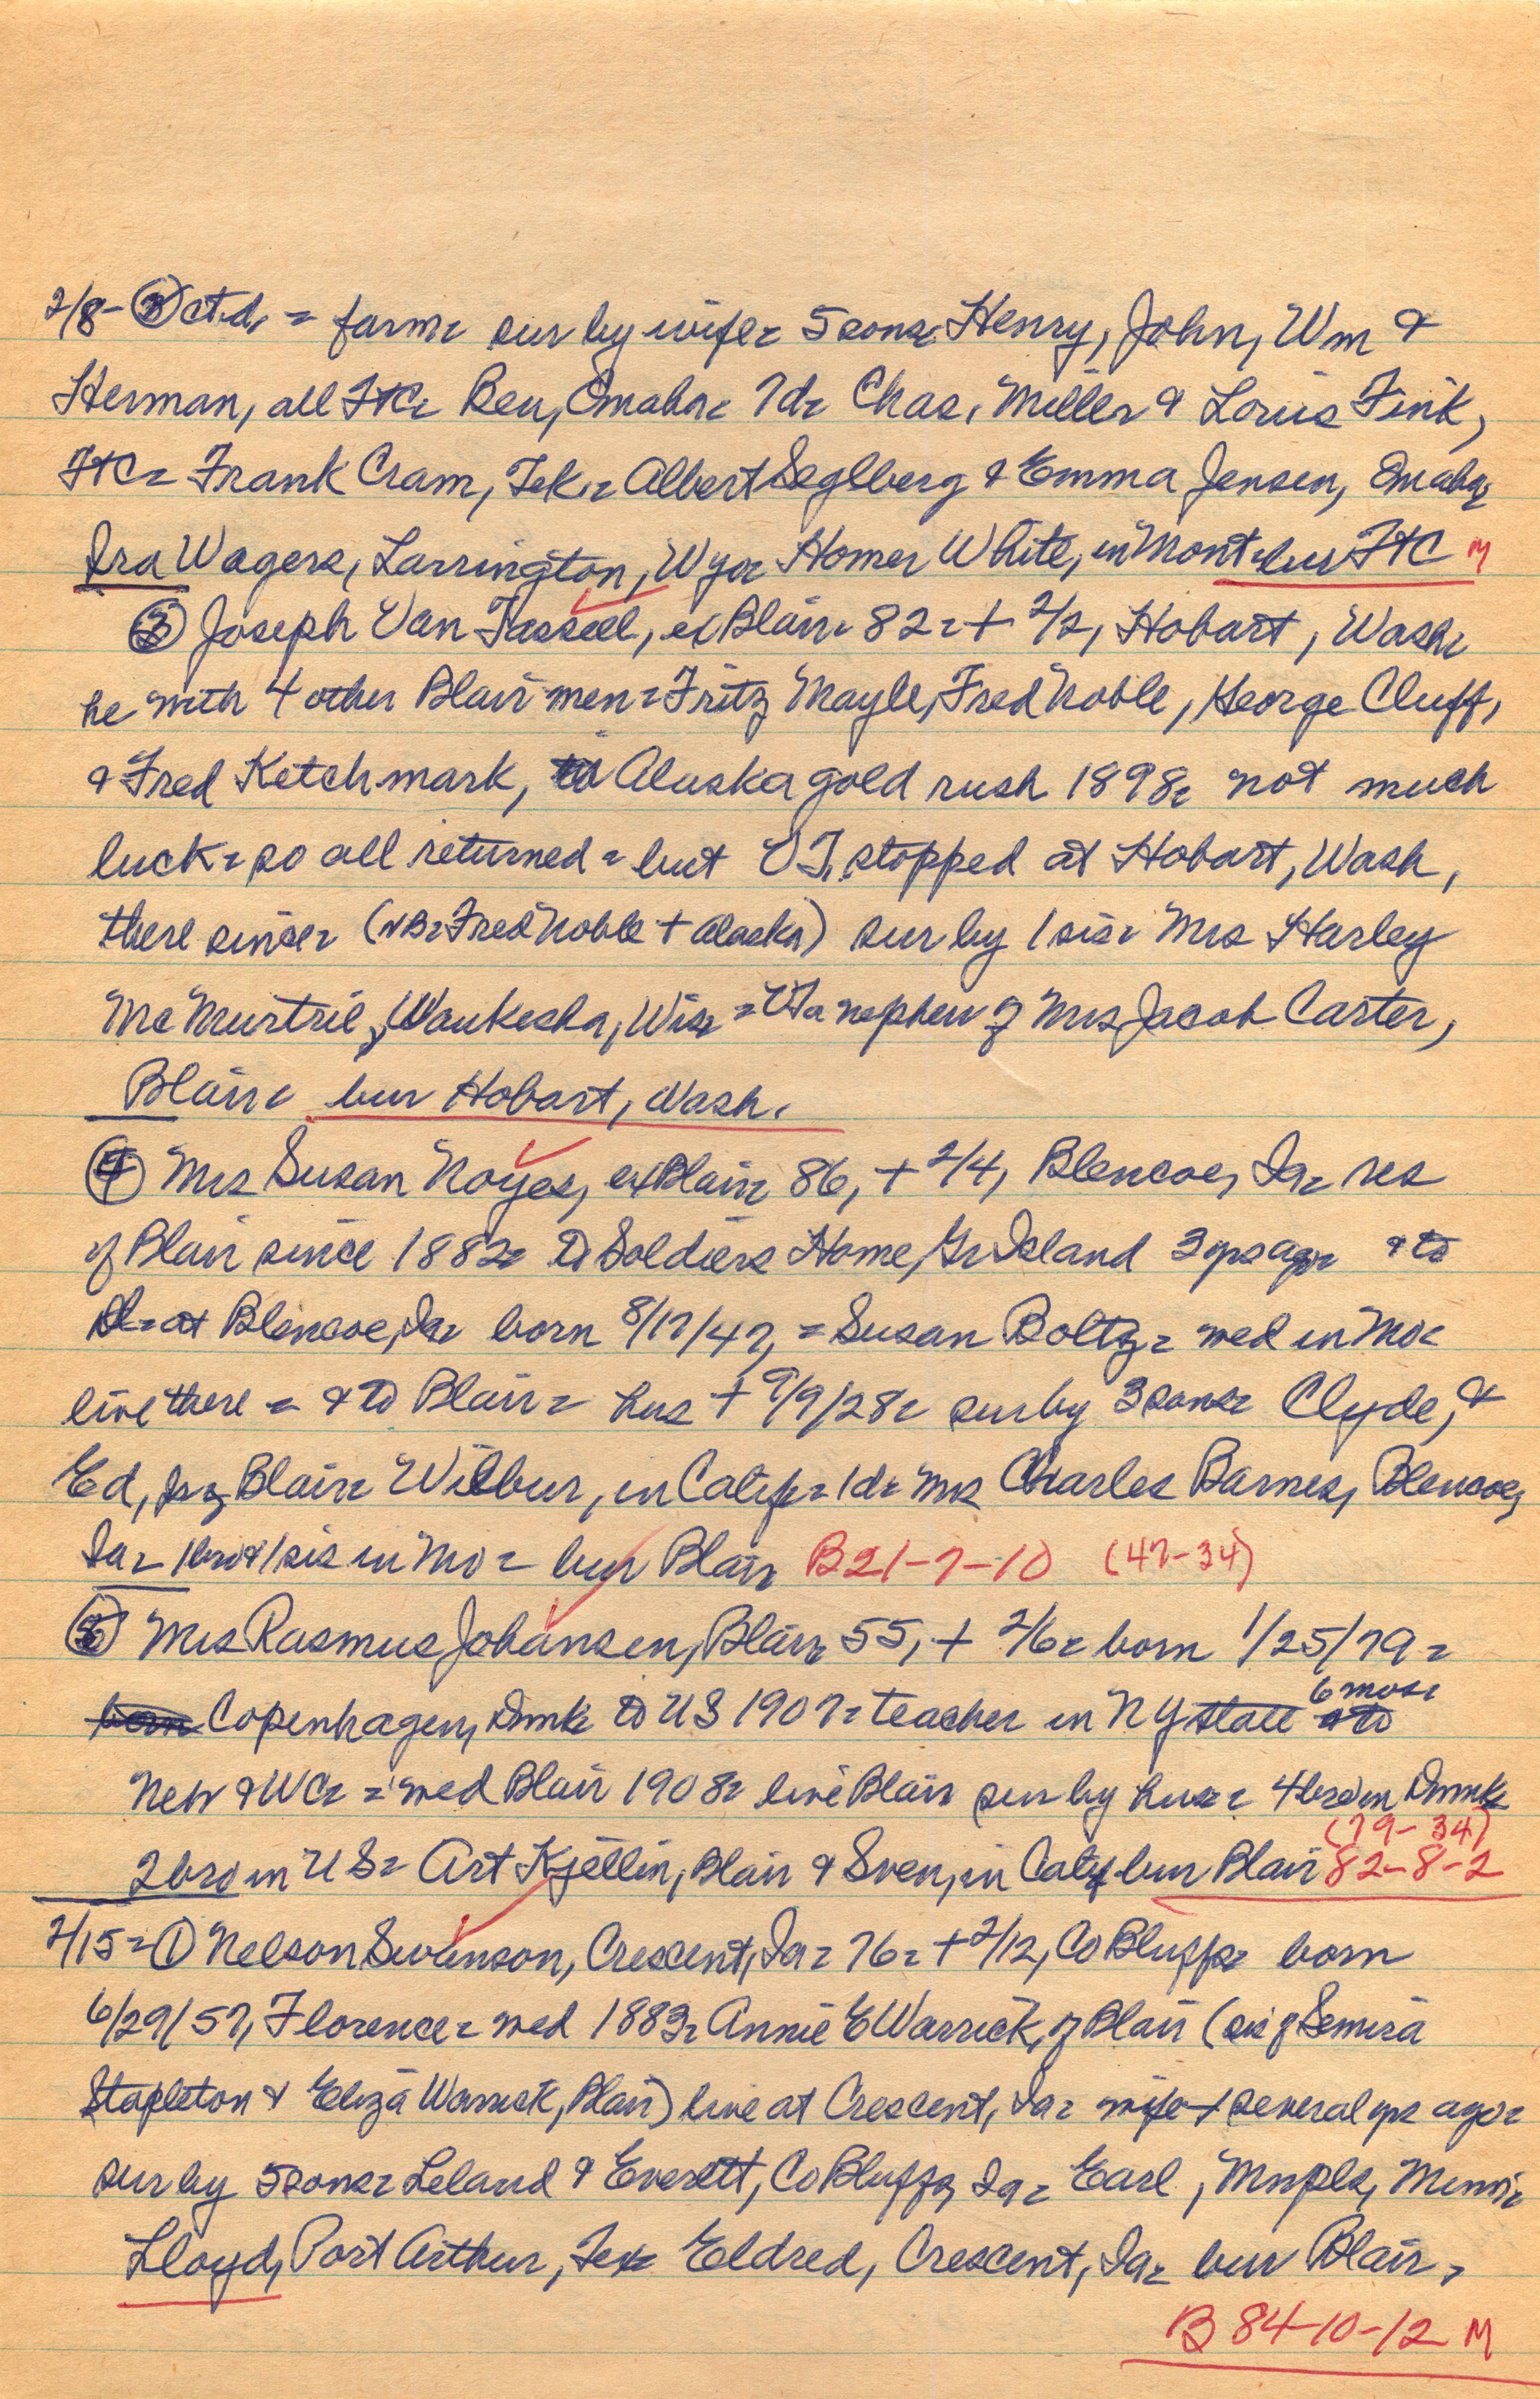 2/8- ② ct.d. = farm= sur by wife= 5 sons= Henry, John, Wm &
Herman, all FtC= Ben, Omaha= 7d= Chas. Miller & Louis Fink,
FtC= Frank Cram, Tek.= Albert Seglberg & Emma Jensen, Omaha,
Ira Wagers, Larrington, Wyo= Homer White, in Mont= bur FtC M
③ Joseph Van Tassell, ex Blair= 82= + 2/2, Hobart, Wash=
he with 4 other Blair men= Fritz Mayle, Fred Noble, George Cluff,
& Fred Ketchmark, to Alaska gold rush 1898= not much
luck= so all returned= but VT. stopped at Hobart, Wash,
there since= (NB= Fred Noble + Alaska) sur by 1 sis= Mrs Harley
McMurtrie, Waukesha, Wis= = VT a nephew of Mrs Jacob Carter,
Blair= bur Hobart, Wash.
④ Mrs Susan Noyes, ex Blair= 86, + 2/4, Blencoe, Ia= res
of Blair since 1882= to Soldiers Home, Gr Island 3 yrs ago= & to
d= at Blencoe, Ia= born 8/17/47, = Susan Boltz= wed in Mo=
live there = & to Blair= hus + 9/9/28= sur by 3 sons= Clyde, &
Ed, of Blair= Wilbur, in Calif= 1d= Mrs Charles Barnes, Blencoe,
Ia= 1 bro & 1 sis in Mo= bur Blair B21-7-10 (47-34)
⑤ Mrs Rasmus Johansen, Blair= 55, + 2/6= born 1/25/79=
born Copenhagen, Dnmk= to US 1907= teacher in NY state 6 mos=
& to
Neb & WC= = wed Blair 1908= live Blair sur by hus= 4 bro in Dnmk=
(79-34)
2 bro in US= Art Kjellin, Blair & Sven, in Calif bur Blair 82-8-2
2/15= ① Nelson Swanson, Crescent, Ia= 76= + 2/12, Co Bluffs= born
6/29/57, Florence= wed 1883= Annie E Warrick, of Blair (sis of Semira
Stapleton & Eliza Warrick, Blair) live at Crescent, Ia= wife + several yrs ago=
sur by 5 sons= Leland & Everett, Co Bluffs, Ia= Earl, Mnpls, Minn=
Lloyd, Port Arthur, Tex= Eldred, Crescent, Ia= bur Blair,
B 84-10-12 M